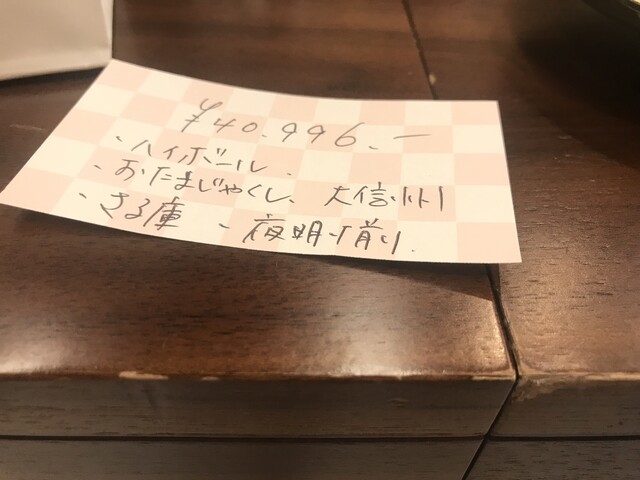 ¥40.996.-
・ハイボール.
・おたまじゃくし、大信州
・さる庫 ・夜明け前り.